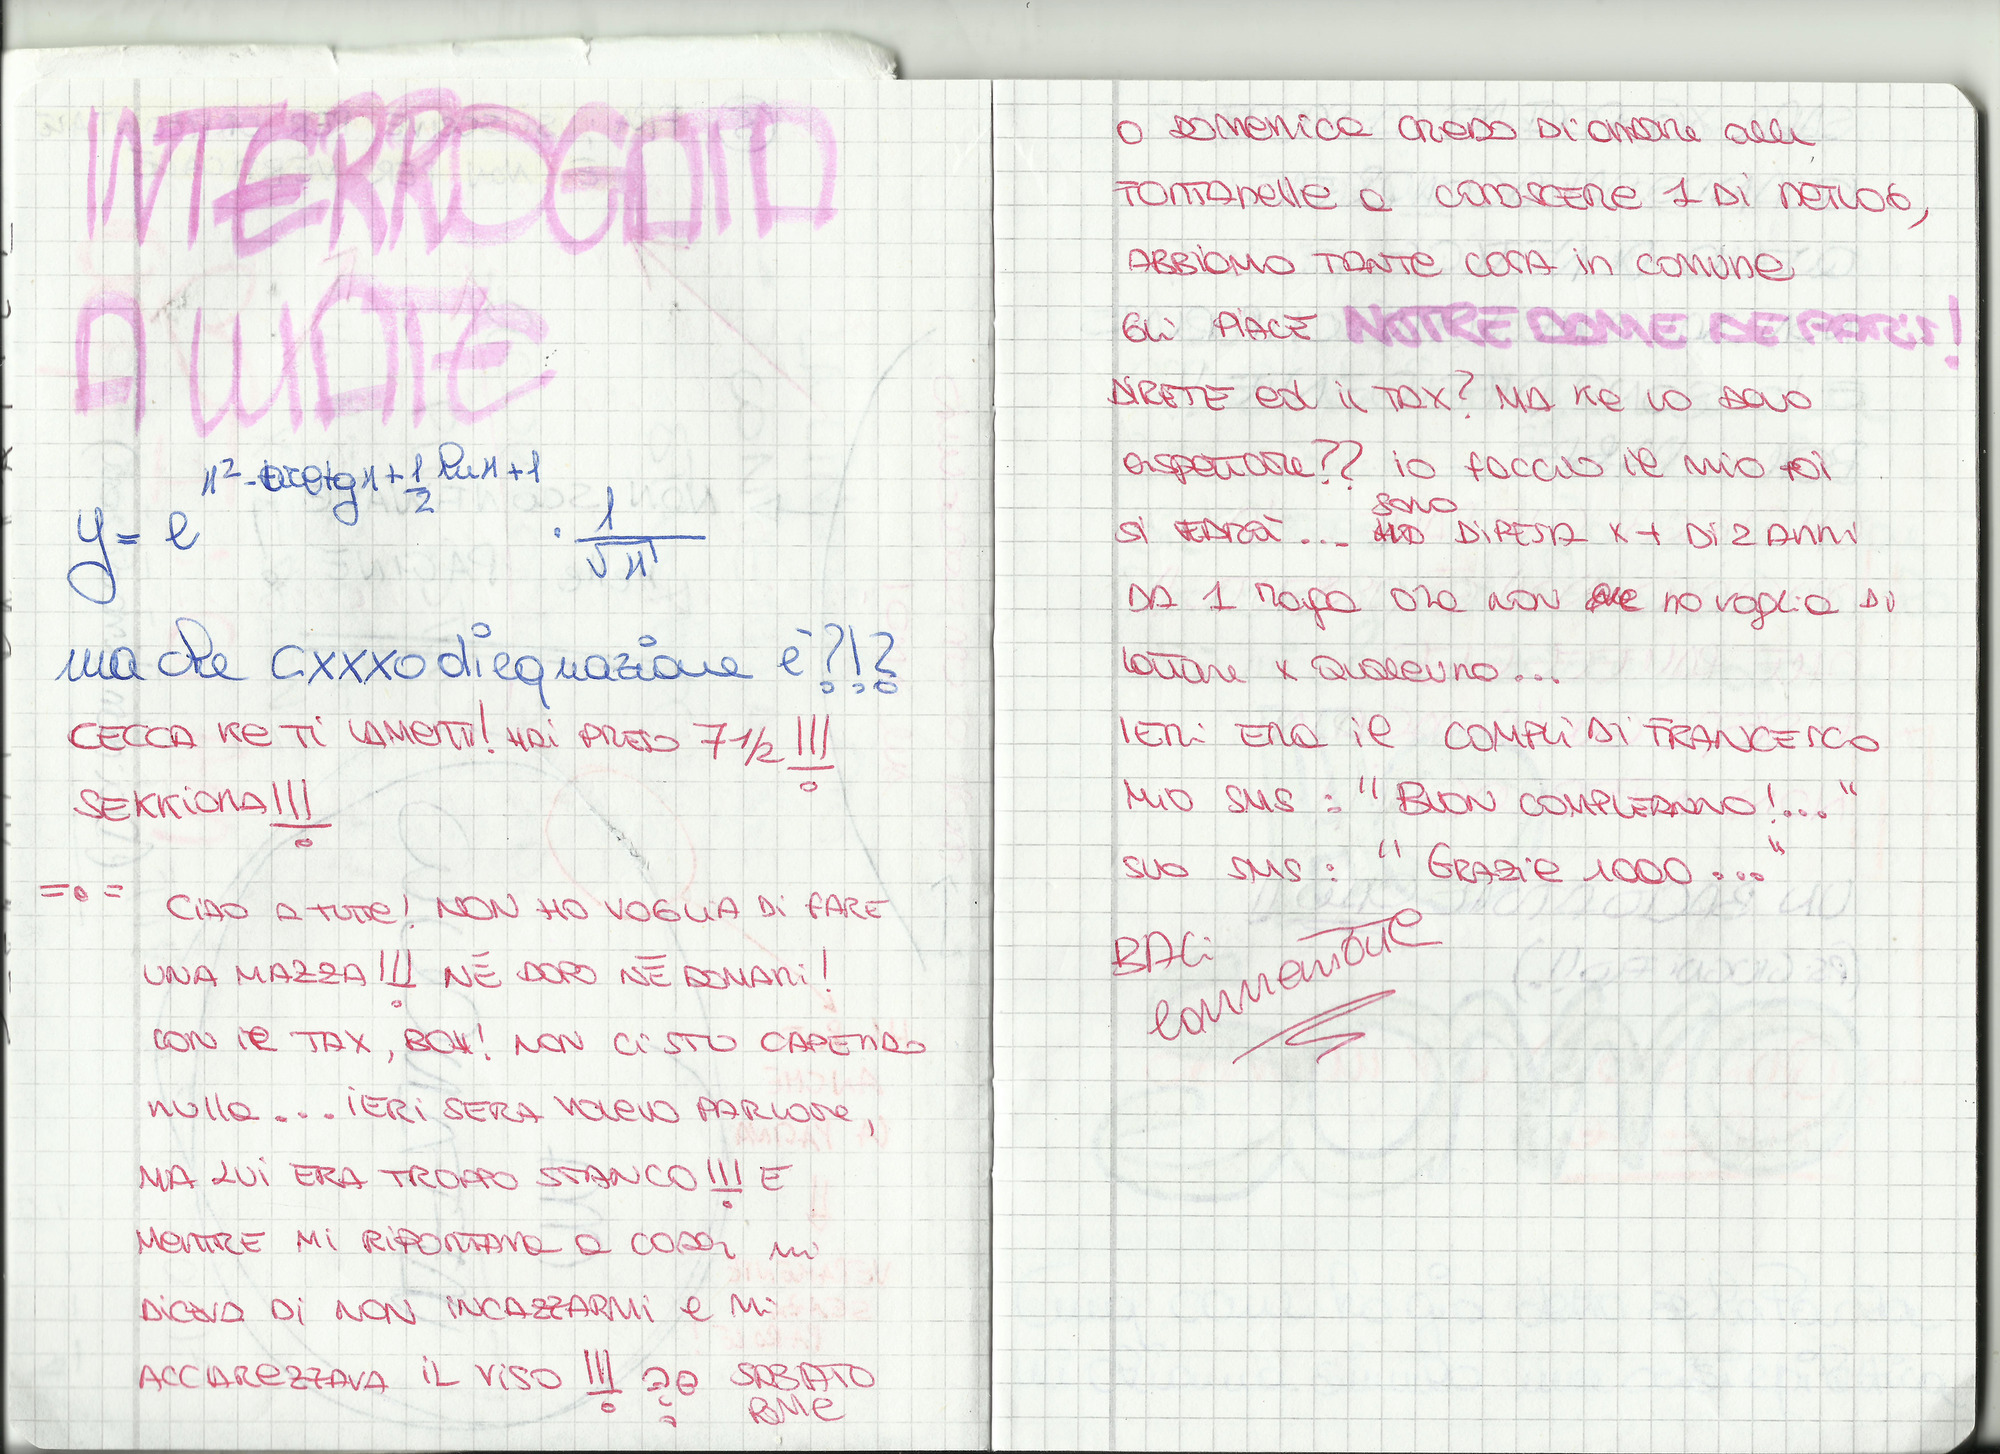 INTERROGATA
A MATE
y = e^{x² - arctg x + 1/2 ln x + 1} · 1/√x
ma che cxxxo di equazione è?!?
CECCA KE TI LAMENTI! HAI PRESO 7 1/2 !!!
SEKKIONA!!!
=•= CIAO A TUTTE! NON HO VOGLIA DI FARE
UNA MAZZA!!! NÉ DOPO NÉ DOMANI!
CON IL TAX, BOH! NON CI STO CAPENDO
nulla... IERI SERA VOLEVO PARLARE,
MA LUI ERA TROPPO STANCO!!! E
MENTRE MI RIPORTAVA A CASA mi
DICEVA DI NON INCAZZARMI e Mi
ACCAREZZAVA iL VISO !!! ?? SABATO
POME
O DOMENICA CREDO Di ANDARE alle
FONTANELLE a CONOSCERE 1 Di NETLOG,
ABBIAMO TANTE COSA in COMUNE
GLI PIACE NOTRE DAME DE PARIS!
DIRETE ed iL TAX? MA KE LO DEVO
ASPETTARE?? io faccio il mio poi
Si VEDRÀ... sono DIPESA x + Di 2 ANNi
DA 1 RAGA ORA NON HO VOGLIA Di
LOTTARE x QUALCUNO...
IERI ERA il COMPLI Di FRANCESCO
MIO SMS: "BUON COMPLEANNO!..."
SUO SMS: "GRAZIE 1000..."
BACi
commentate